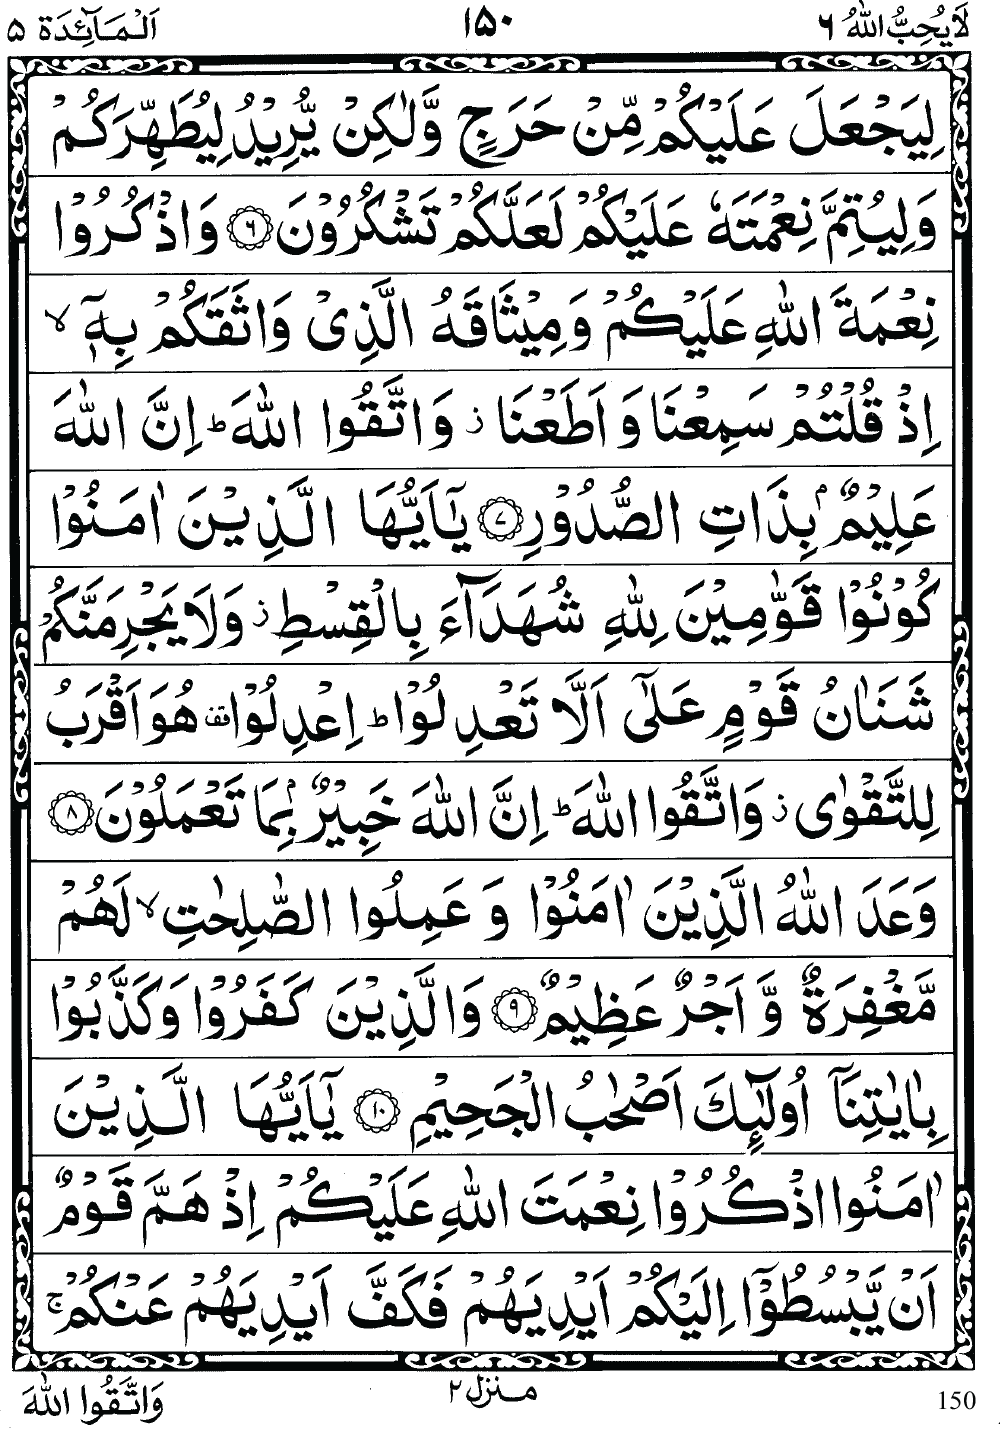 لَا يُحِبُّ اللّٰهُ ٦ ١٥٠ اَلْمَآئِدَة ٥
لِيَجْعَلَ عَلَيْكُمْ مِّنْ حَرَجٍ وَّلٰكِنْ يُّرِيْدُ لِيُطَهِّرَكُمْ
وَلِيُتِمَّ نِعْمَتَهٗ عَلَيْكُمْ لَعَلَّكُمْ تَشْكُرُوْنَ ﴿٦﴾ وَاذْكُرُوْا
نِعْمَةَ اللّٰهِ عَلَيْكُمْ وَمِيْثَاقَهُ الَّذِىْ وَاثَقَكُمْ بِهٖٓ ۙ
اِذْ قُلْتُمْ سَمِعْنَا وَ اَطَعْنَا ز وَاتَّقُوا اللّٰهَ ؕ اِنَّ اللّٰهَ
عَلِيْمٌۢ بِذَاتِ الصُّدُوْرِ ﴿٧﴾ يٰٓاَيُّهَا الَّذِيْنَ اٰمَنُوْا
كُوْنُوْا قَوّٰمِيْنَ لِلّٰهِ شُهَدَآءَ بِالْقِسْطِ ز وَلَا يَجْرِمَنَّكُمْ
شَنَاٰنُ قَوْمٍ عَلٰٓى اَلَّا تَعْدِلُوْا ؕ اِعْدِلُوْا قف هُوَ اَقْرَبُ
لِلتَّقْوٰى ز وَاتَّقُوا اللّٰهَ ؕ اِنَّ اللّٰهَ خَبِيْرٌۢ بِمَا تَعْمَلُوْنَ ﴿٨﴾
وَعَدَ اللّٰهُ الَّذِيْنَ اٰمَنُوْا وَ عَمِلُوا الصّٰلِحٰتِ ۙ لَهُمْ
مَّغْفِرَةٌ وَّ اَجْرٌ عَظِيْمٌ ﴿٩﴾ وَالَّذِيْنَ كَفَرُوْا وَكَذَّبُوْا
بِاٰيٰتِنَآ اُولٰٓئِكَ اَصْحٰبُ الْجَحِيْمِ ﴿١٠﴾ يٰٓاَيُّهَا الَّذِيْنَ
اٰمَنُوا اذْكُرُوْا نِعْمَتَ اللّٰهِ عَلَيْكُمْ اِذْ هَمَّ قَوْمٌ
اَنْ يَّبْسُطُوْٓا اِلَيْكُمْ اَيْدِيَهُمْ فَكَفَّ اَيْدِيَهُمْ عَنْكُمْ ۚ
150 منزل ٢ وَاتَّقُوا اللّٰهَ